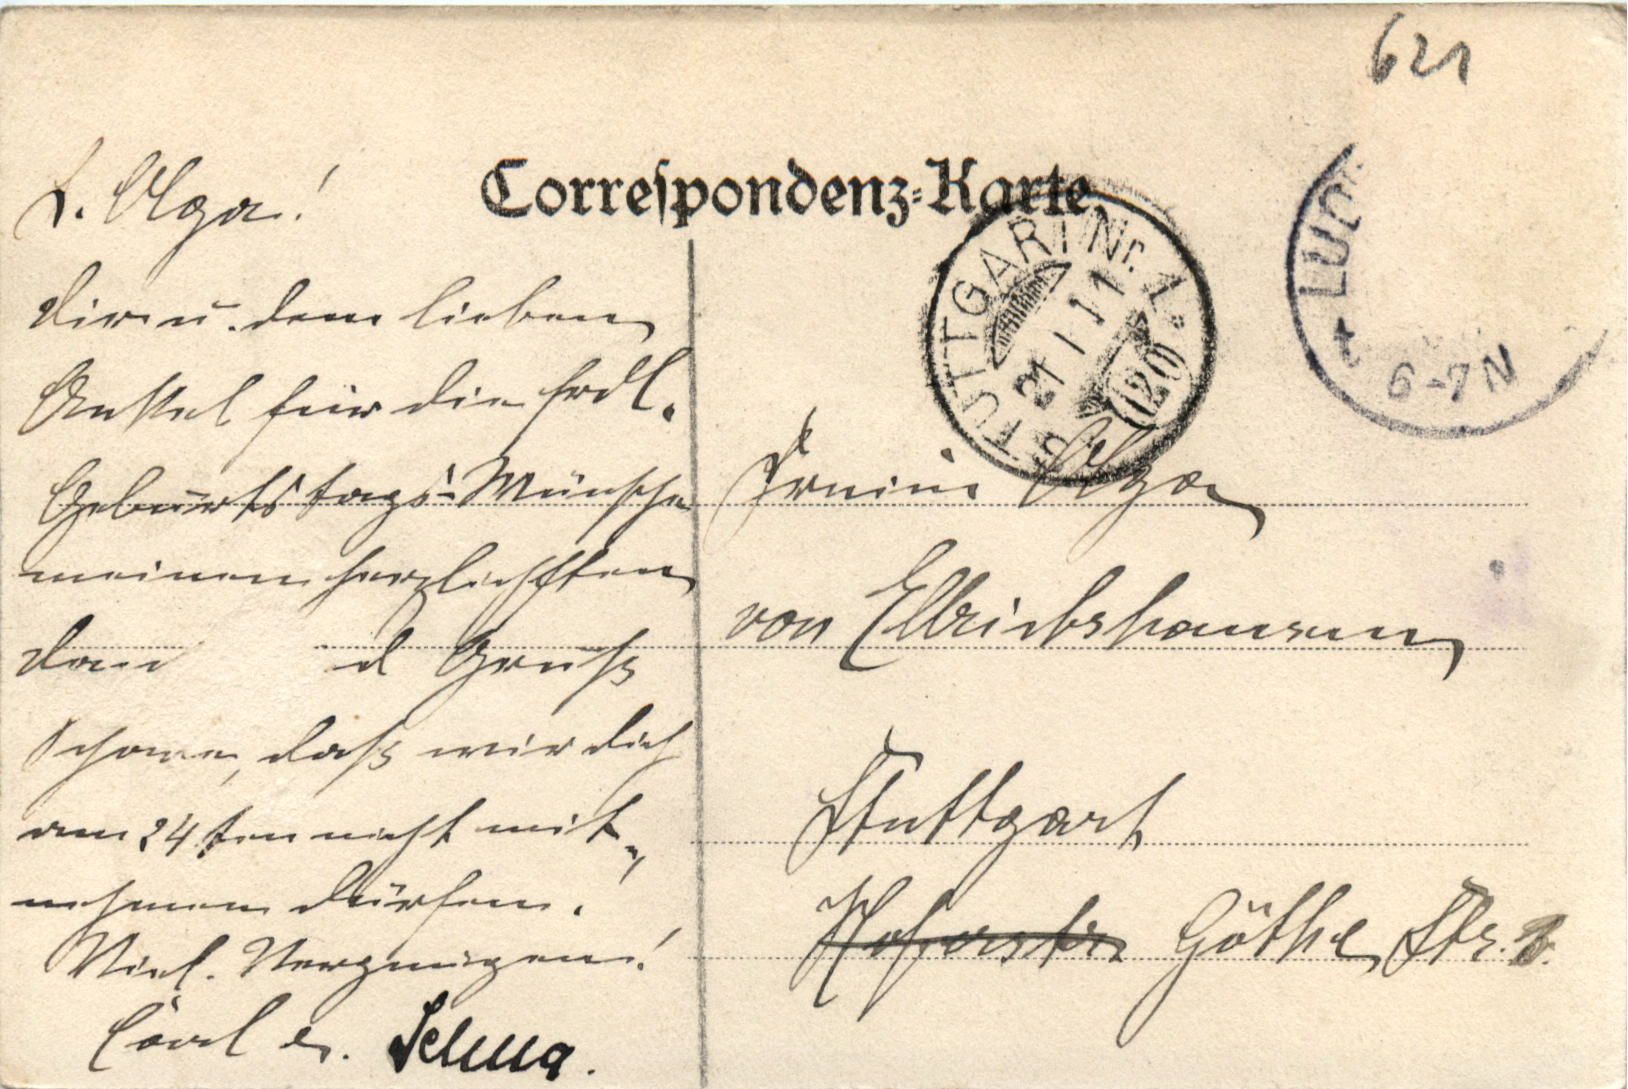 621
Correspondenz-Karte.
STUTTGART Nr. 1.
21 1 11
120
LUD
t
6-7N
L. Olga!
Dir u. dem lieben
Onkel für die frdl.
Geburtstags-Wünsche
meinen herzlichsten
Dan d Gruß
Schade, daß wir dich
am 24ten nicht mit-
nehmen dürfen.
Viel. Vergnügen!
Carl u. Selma.
Olga
von Ellrichshausen
Stuttgart
Göthe Str.